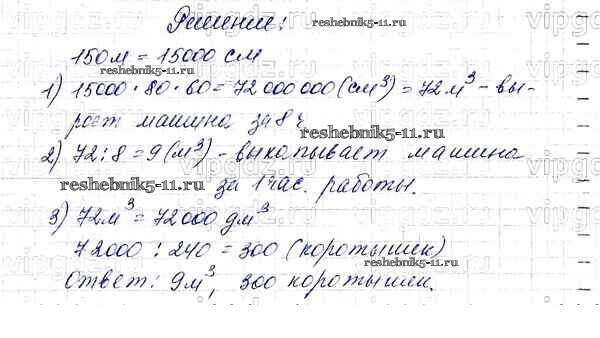 Решение:
reshebnik5-11.ru
150 м = 15000 см
reshebnik5-11.ru
1) 15000 · 80 · 60 = 72 000 000 (см³) = 72 м³ - вы-
роет машина за 8 ч.
reshebnik5-11.ru
2) 72 : 8 = 9 (м³) - выкапывает машина
reshebnik5-11.ru за 1 час. работы.
3) 72 м³ = 72000 дм³
72000 : 240 = 300 (коротышек)
reshebnik5-11.ru
Ответ: 9 м³, 300 коротышек.